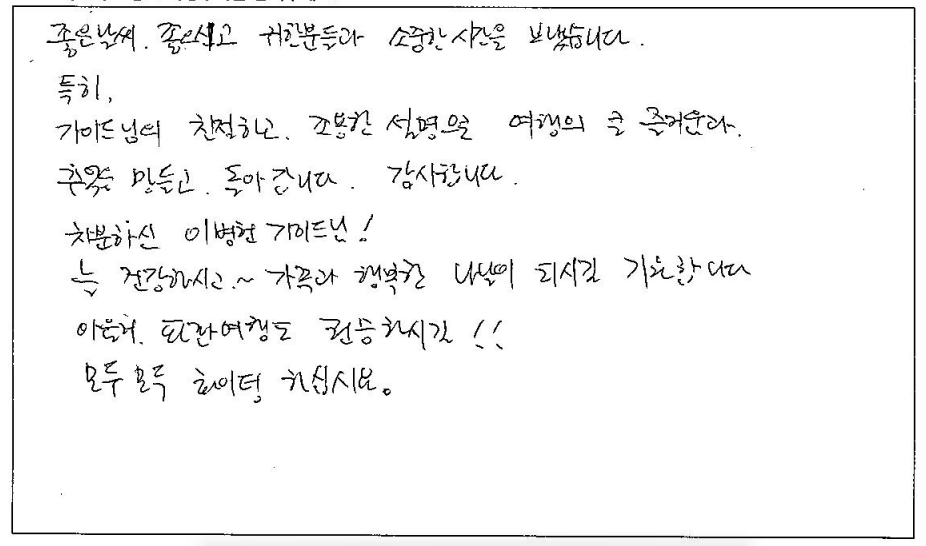 좋은날씨. 좋으시고 귀한분들과 소중한 시간을 보냈습니다.
특히,
가이드님의 친절하고. 조용한 설명으로 여행의 큰 즐거운과.
추억을 만들고. 돌아갑니다. 감사합니다.
차분하신 이병헌 가이드님!
늘 건강하시고.~ 가족과 행복한 나날이 되시길 기원합니다
아울러. 여행도 번승하시길 !!
모두모두 화이팅 하십시요.